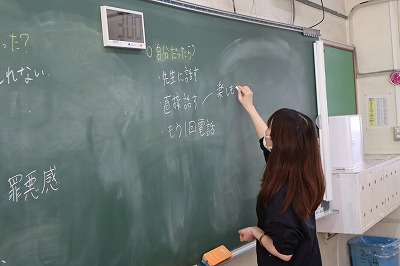 った?
れない.
罪悪感
○自分だったら?
・先生に話す
・直接話す ― 楽しも
・もう1回電話